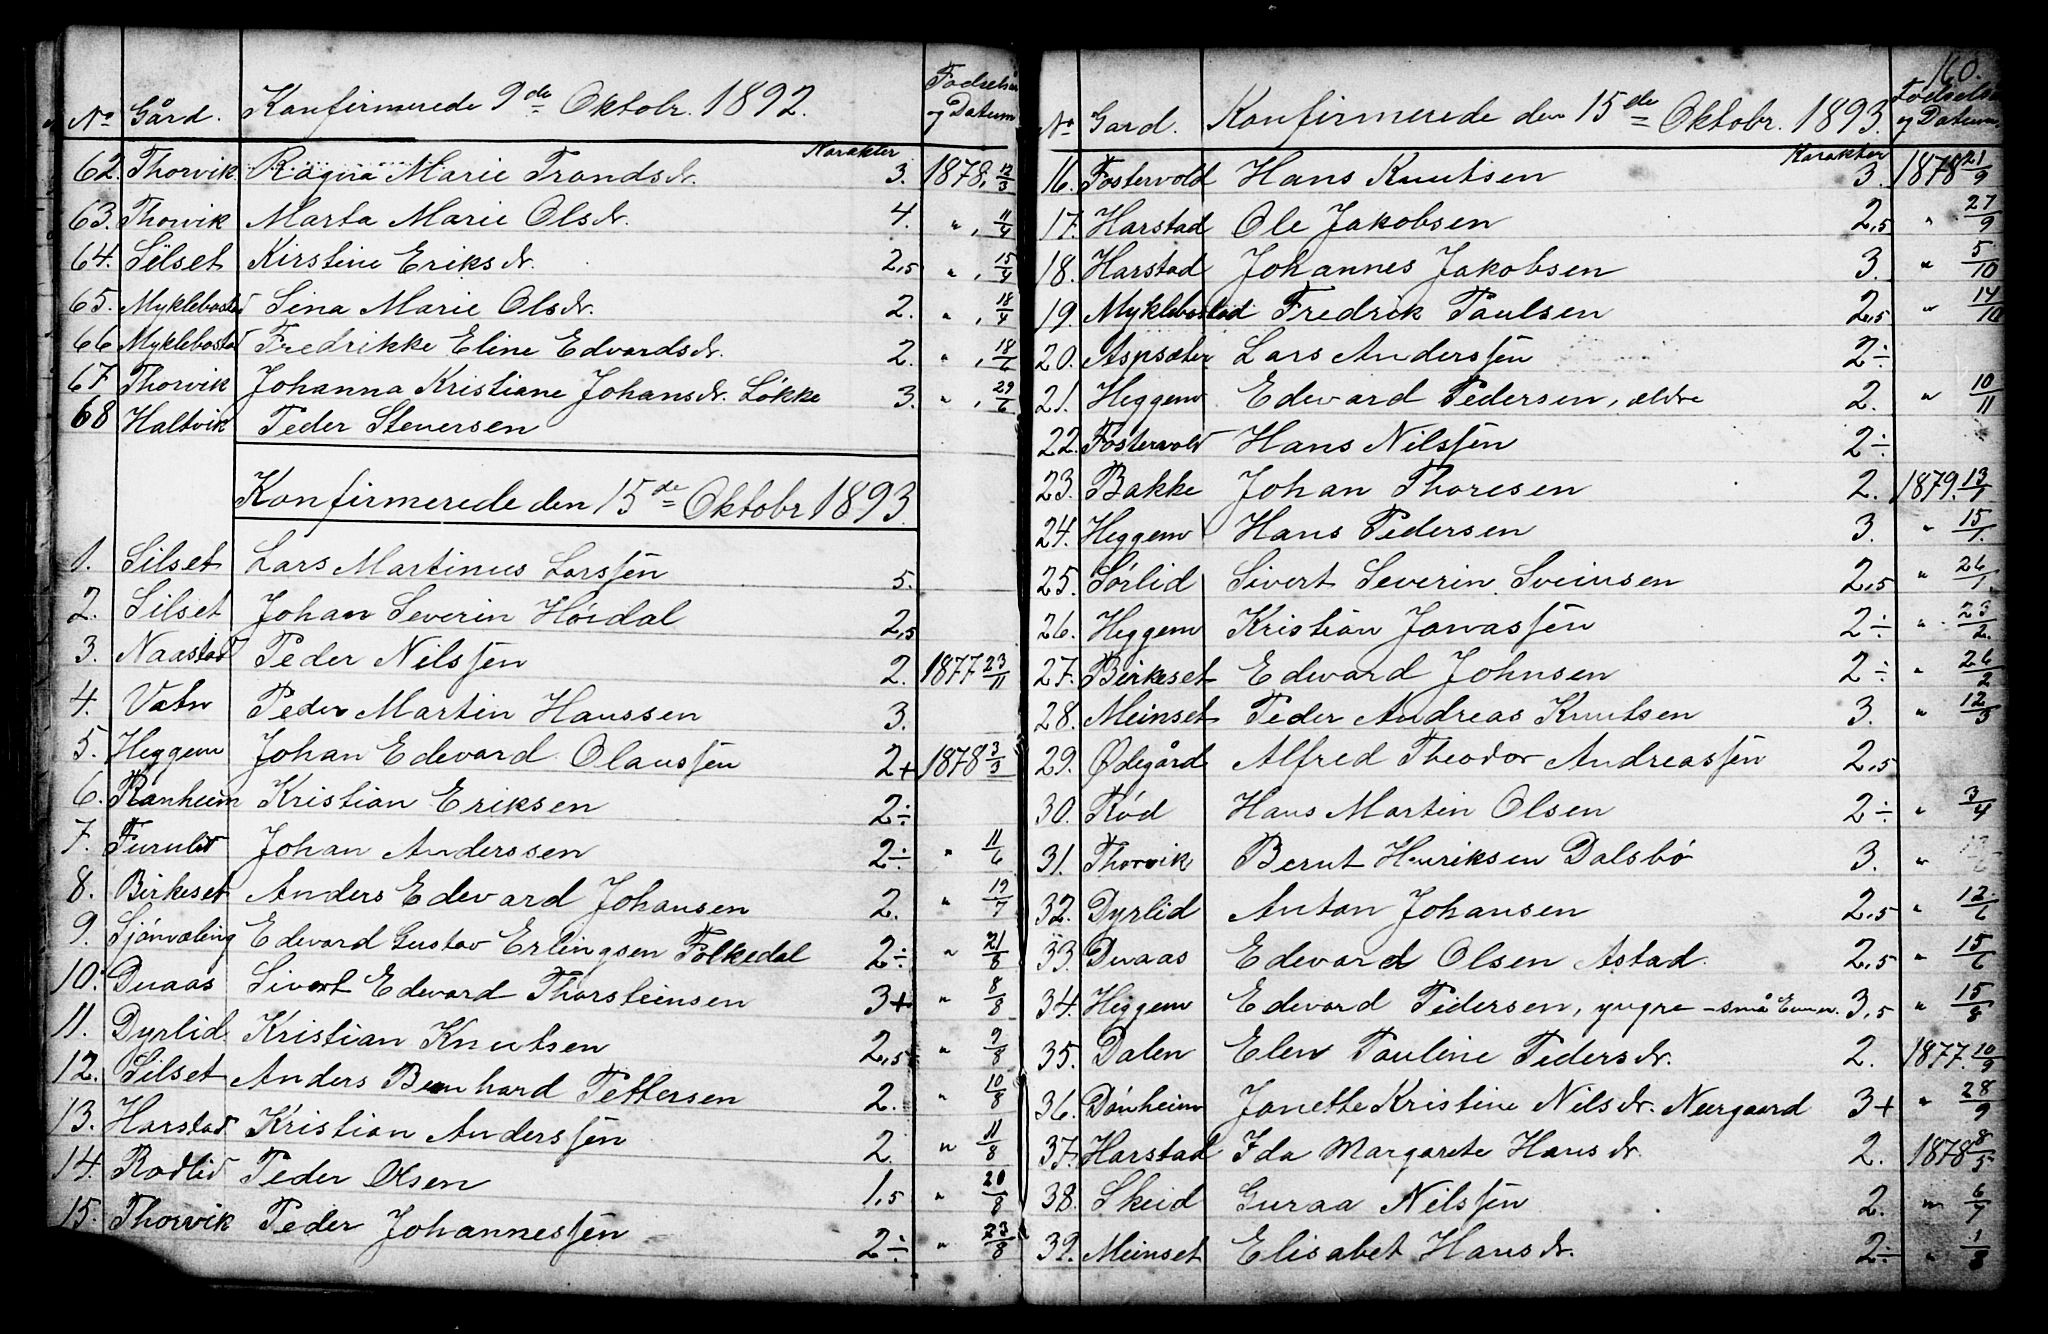 No Gård. Konfirmerede 9de Oktobr. 1892. Karakter Fødselsår og Datum
62. Thorvik Ragna Marie Trondsdr. 3. 1878, 12/3
63. Thorvik Marta Marie Olsdr. 4. ", 11/4
64. Silset Kirstine Eriksdr. 2,5 ", 15/4
65. Myklebostad Sina Marie Olsdr. 2. ", 18/4
66 Myklebostad Fredrikke Eline Edvardsdr. 2. ", 18/6
67. Thorvik Johanna Kristiane Johansdr. Løkke 3. ", 29/6
68 Haltvik Peder Steversen
Konfirmerede den 15de Oktobr 1893.
1. Silset Lars Martinus Larssen 5.
2. Silset Johan Severin Høidal 2,5
3. Naastad Peder Nilssen 2. 1877 23/11
4. Vatn Peder Martin Hanssen 3.
5. Heggem Johan Edevard Olaussen 2+ 1878 3/3
6. Ranheim Kristian Eriksen 2÷
7. Furulid Johan Anderssen 2÷ " 11/6
8. Birkeset Anders Edevard Johansen 2. " 19/7
9. Sjønvaling Edevard Gustav Erlingsen Folkedal 2÷ " 21/8
10. Duaas Sivert Edevard Thorsteinsen 3+ " 8/8
11. Dyrlid Kristian Knutsen 2,5 " 9/8
12. Silset Anders Bernhard Pettersen 2. " 10/8
13. Harstad Kristian Anderssen 2 " 11/8
14. Rødlid Peder Olsen 1,5 " 20/8
15. Thorvik Peder Johannessen 2÷ " 23/8
160.
No Gard. Konfirmerede den 15de Oktobr. 1893. Karakter Fødselsår og Datum.
16. Fostervold Hans Knutsen 3. 1878 21/9
17. Harstad Ole Jakobsen 2,5 " 27/9
18. Harstad Johannes Jakobsen 3. " 5/10
19. Myklebostad Fredrik Paulsen 2,5 " 14/10
20. Aspsæter Lars Anderssen 2÷
21. Heggem Edevard Pedersen, ældre 2. " 10/11
22. Fostervold Hans Nilssen 2÷
23. Bakke Johan Thoresen 2. 1879. 13/1
24. Heggem Hans Pedersen 3. " 15/1
25. Sørlid Sivert Severin Sveinsen 2,5 " 26/1
26. Heggem Kristian Jonassen 2÷ " 23/2.
27. Birkeset Edevard Johnsen 2÷ " 26/2
28. Meinset Peder Andreas Knutsen 3. " 12/3
29. Ødegård Alfred Theodor Andreassen 2,5
30. Rød Hans Martin Olsen 2÷ " 3/4
31. Thorvik Bernt Henriksen Dalsbø 3. "
32. Dyrlid Anton Johansen 2,5 " 12/6
33. Duaas Edevard Olsen Astad 2,5 " 15/6
34. Heggem Edevard Pedersen, yngre – små Evner. 3,5 " 15/8
35. Dalen Elen Pauline Pedersdr. 2. 1877. 10/9
36. Dønheim Janette Kristine Nilsdr. Neergaard 3+ " 28/9
37. Harstad Ida Margarete Hansdr. 2. 1878 8/5
38. Skeid Guraa Nilssen 2. " 6/7
39. Meinset Elisabet Hansdr. 2÷ " 1/8